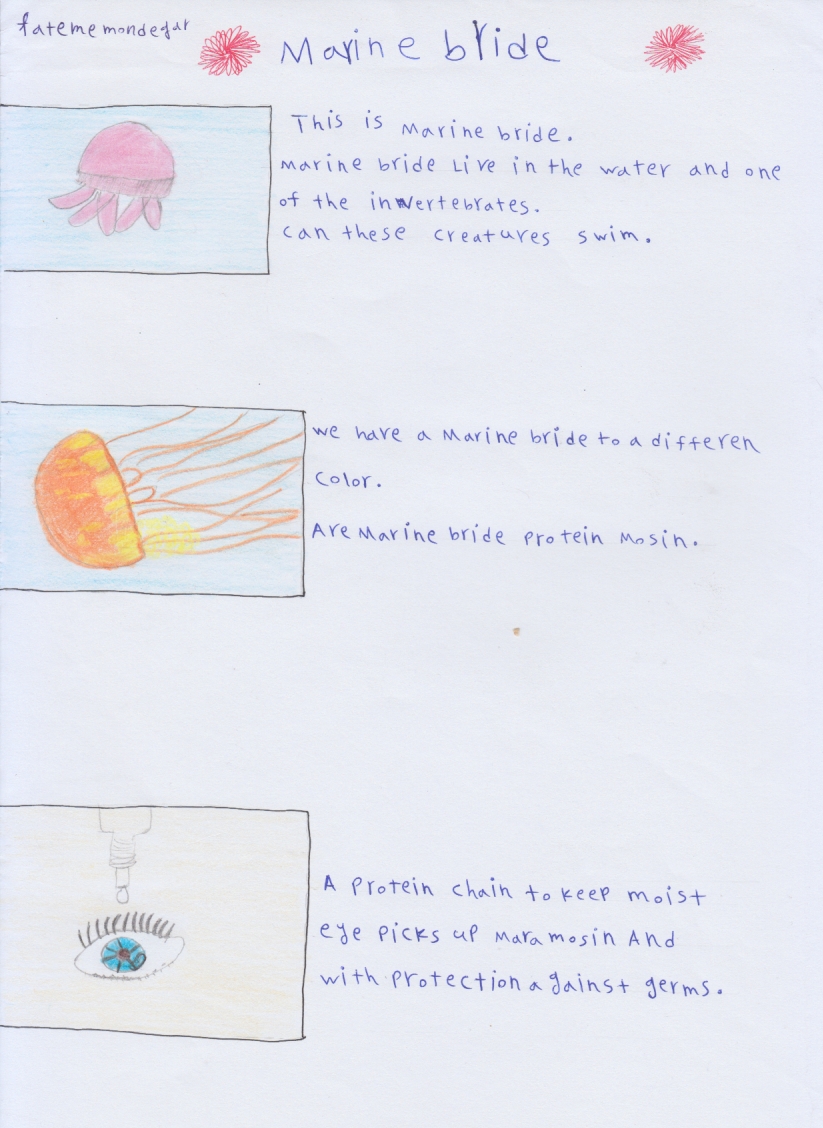 fateme mondegar
Marine bride
This is Marine bride.
Marine bride Live in the water and one
of the invertebrates.
can these creatures swim.
we have a Marine bride to a differen
color.
Are Marine bride protein Mosin.
A Protein chain to keep moist
eye picks up Mara mosin And
with protection against germs.